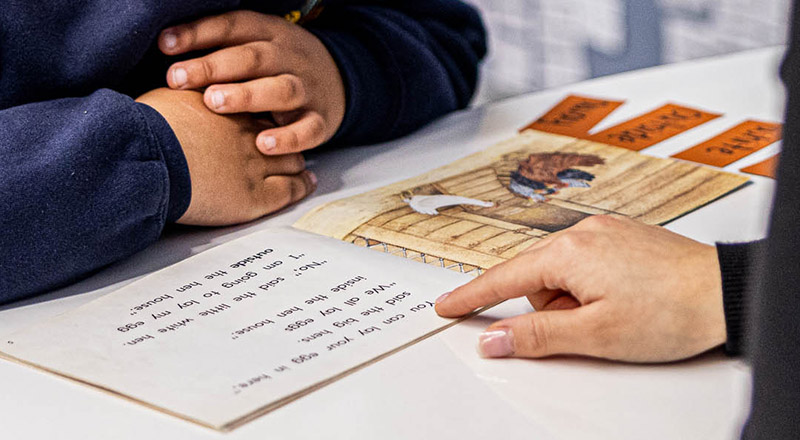 "You can lay your egg in here,"
said the big hens.
"We all lay eggs
inside the hen house."
"No," said the little white hen.
"I am going to lay my egg
outside the hen house."
white
outside